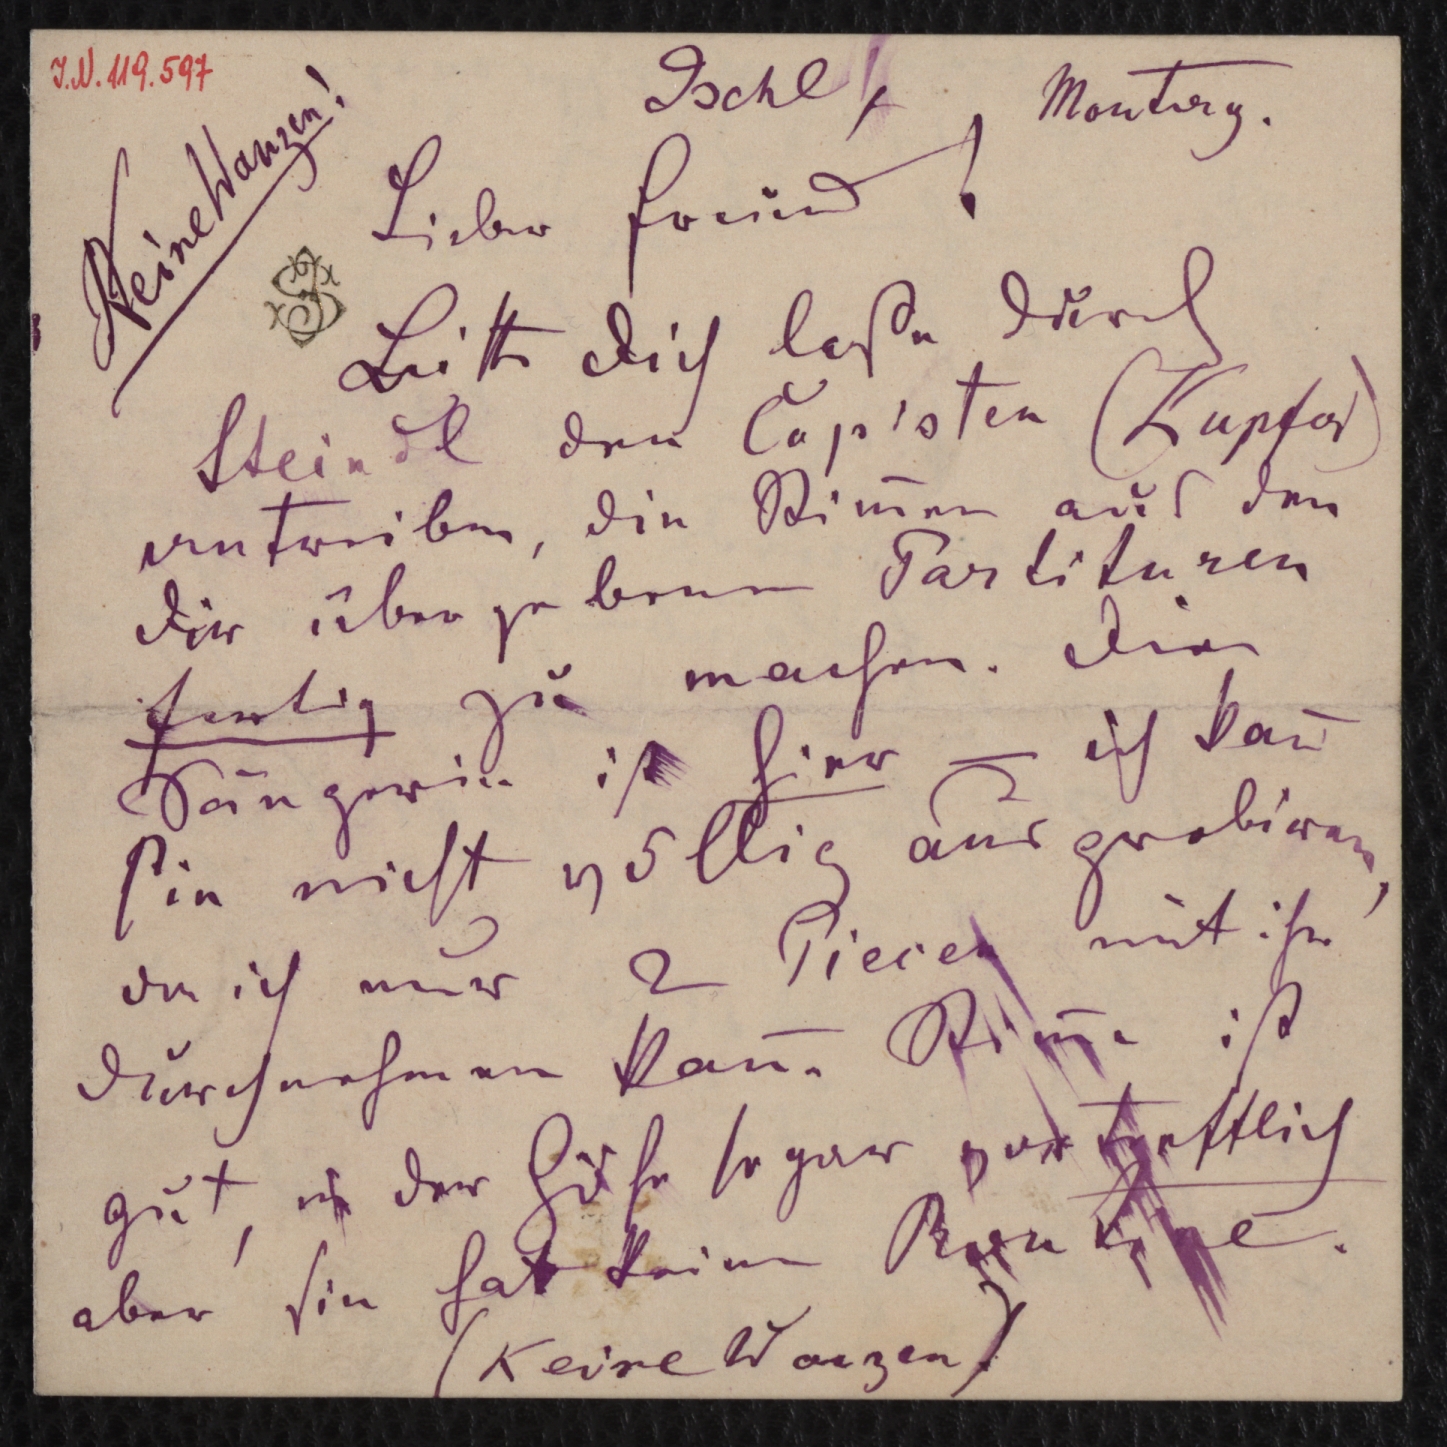 J.N. 119.597
Keine Wanzen!
Ischl, Montag.
Lieber Freund!
JS
Bitte Dich laße durch
Steindl den Copisten (Kupfer)
antreiben, die Stim̅en aus den
Dir übergebenen Partituren
fertig zu machen. Die
Sängerin ist hier — ich kan̅
sie nicht völlig ausprobiren,
da ich nur 2 Piecen mit ihr
durchnehmen kan̅. Stim̅e ist
gut, in der Höhe sogar vortrefflich
aber sie hat keine Routine.
(Keine Wanzen)